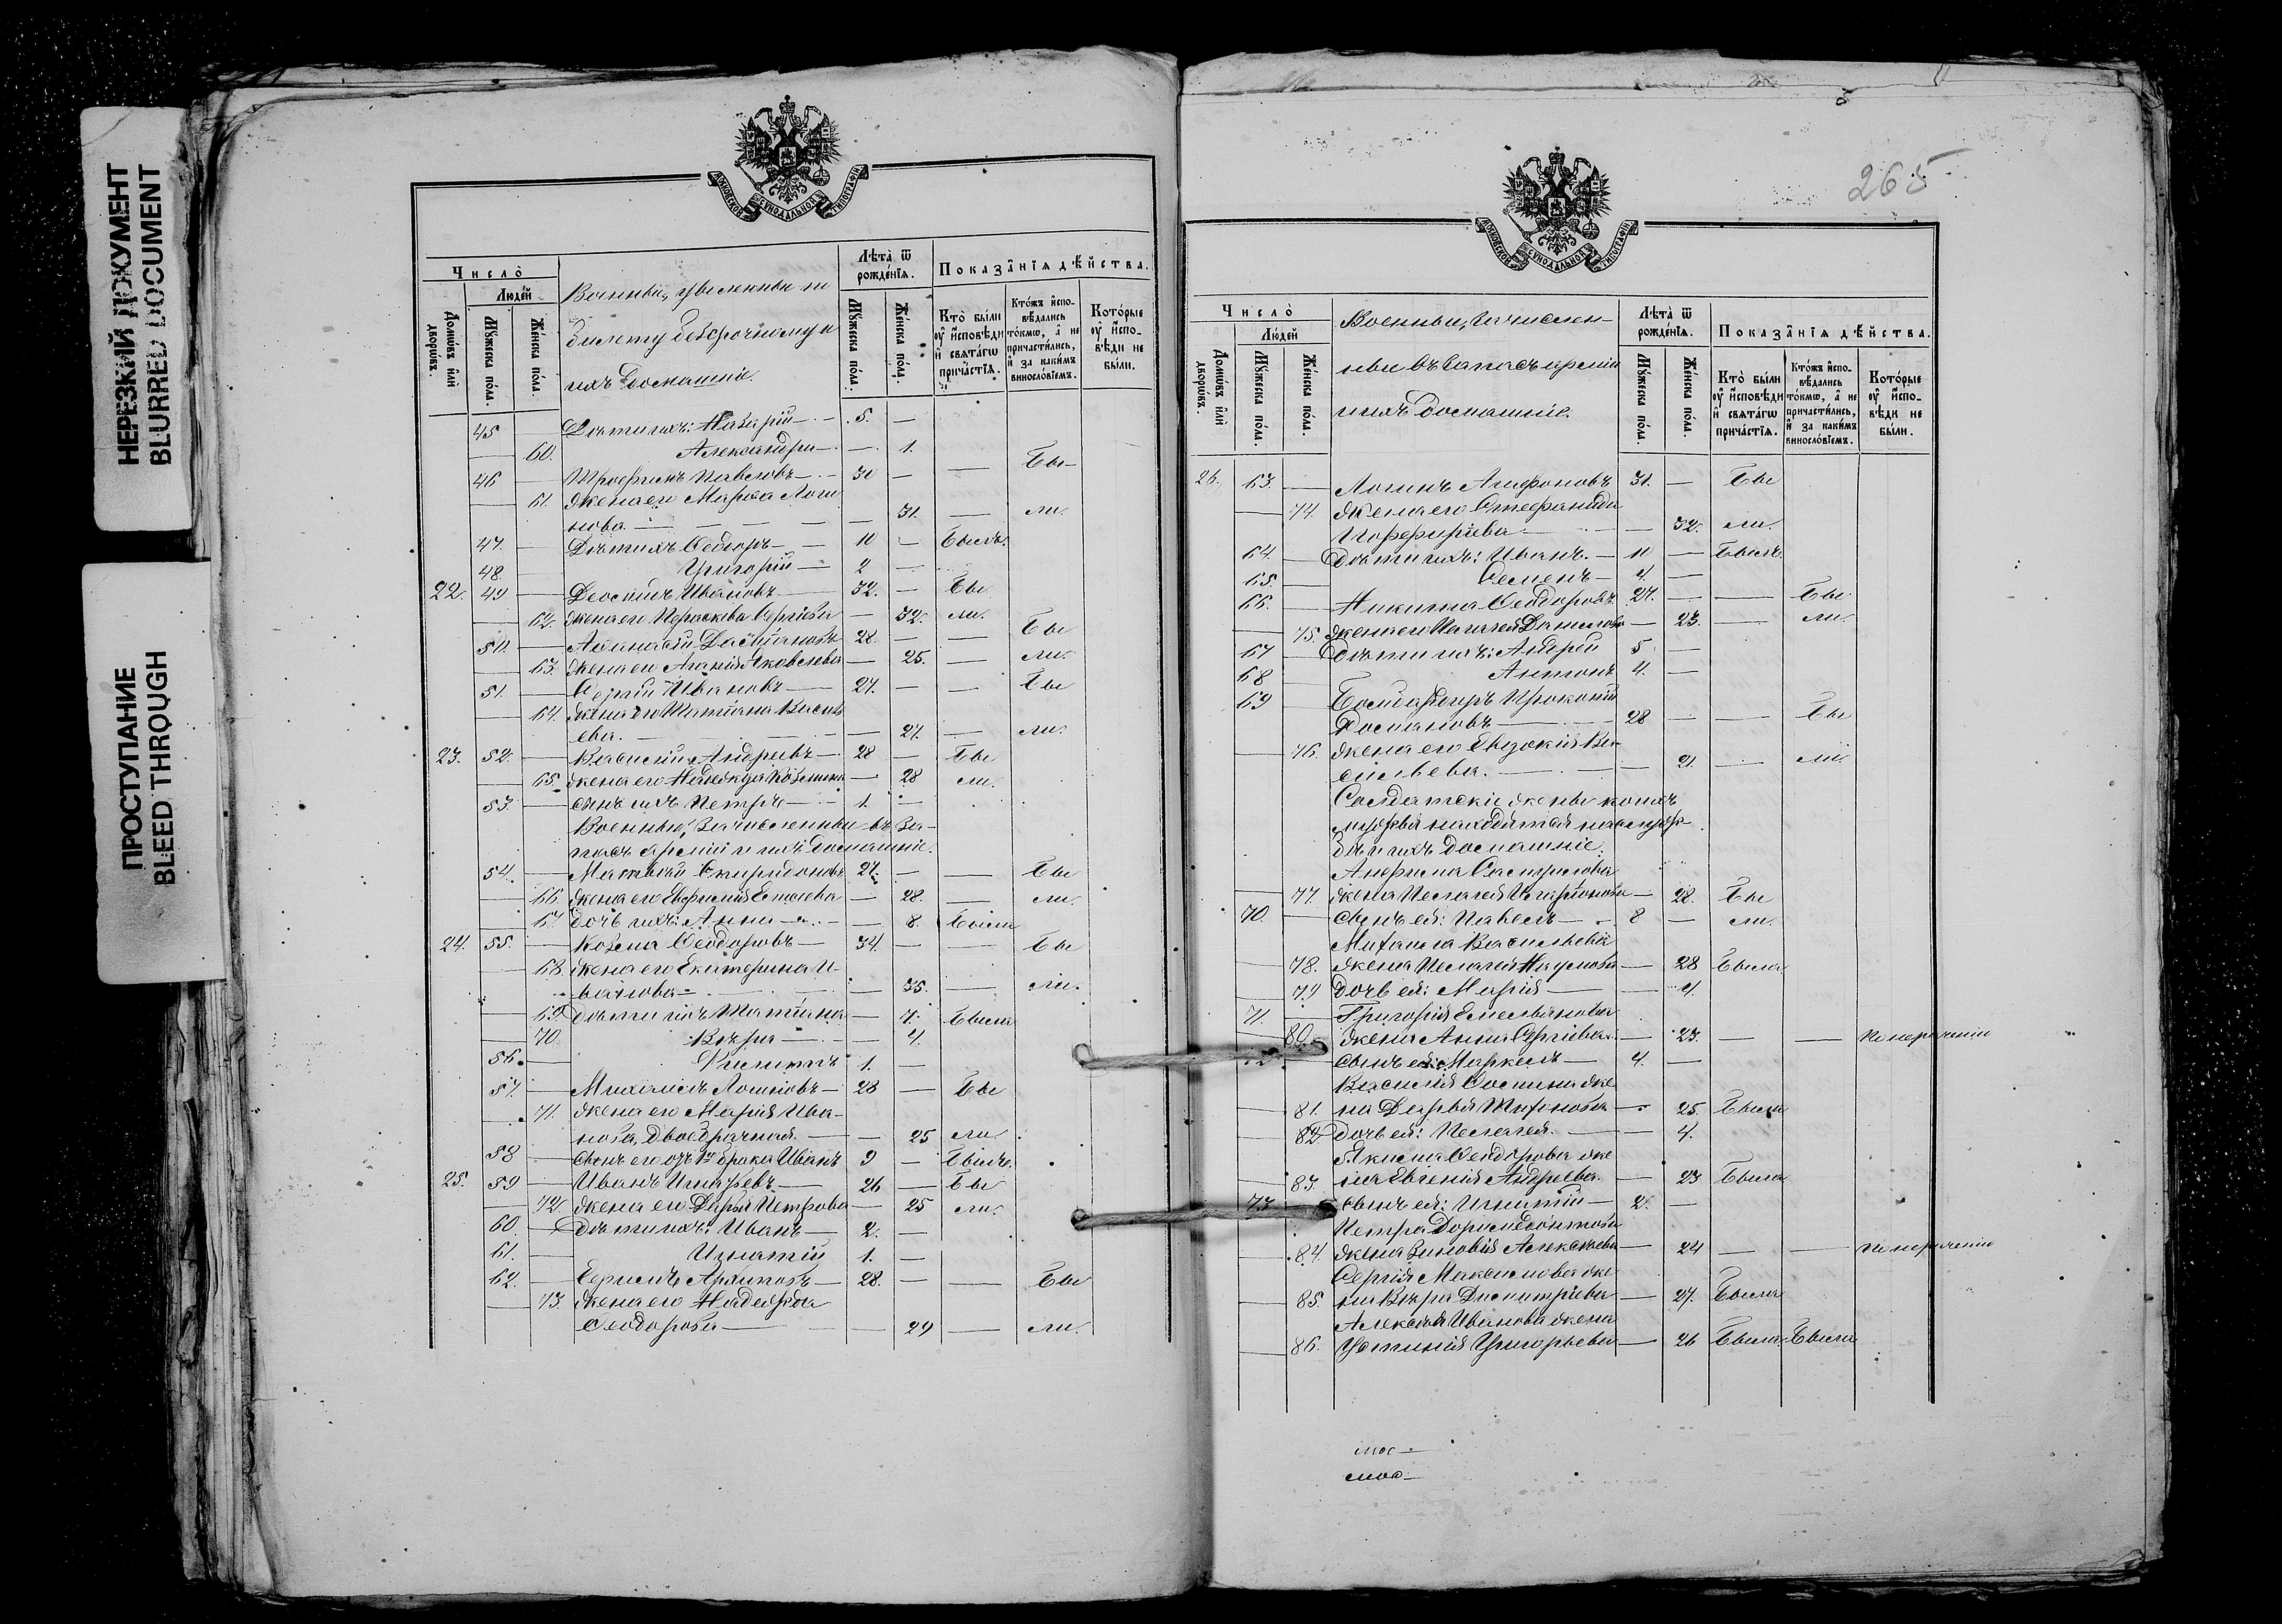 НЕРЕЗКИЙ ДОКУМЕНТ
BLURRED DOCUMENT
ПРОСТУПАНИЕ
BLEED THROUGH
МОСКОВСКОЙ СѴНОДАЛЬНОЙ ТИПОГРАФІИ
Число̀
Людей
Домѡвъ или дворѡвъ.
Мꙋжеска пола.
Женска пола.
Военные, уволенные по
билету безсрочному и
ихъ домашніе.
Лѣта ѿ рожденїѧ.
Мꙋжеска пола.
Женска пола.
Показанїѧ дѣйства.
Кто были оу исповѣди и свѧтагѡ причастїѧ.
Ктожъ исповѣдались токмѡ, а не причастились, и за какимъ винословїемъ.
Которые оу исповѣди не были.
45 — Дѣти ихъ: — 5. —
— 60. Александра — 1.
46 — Трофимъ Павловъ — 30 — — Бы-
— 61. Жена его Марѳа Логи
нова — — 31. — ли.
47. — Дѣти ихъ Ѳеодоръ — 10 — Былъ.
48. — Григорій — 2 —
22. 49 — Леонидъ Ивановъ 32. — Бы
— 62. Жена его Параскева Сергіева — 32. ли.
50. — Аѳанасій 28. — — Бы
— 63. Жена его Агапія Яковлева — 25. — ли.
51. — Сергій Ивановъ — 27. — — Бы
— 64. Жена его Татіана Василь
ева. — — 27. — ли.
23. 52. — Василій Андреевъ — 28 — Бы
— 65. Жена его Надежда Козьмина — 28 ли.
53. — сынъ ихъ Петръ — 1. —
Военные, зачисленные въ за-
пасъ арміи и ихъ домашніе.
54. — Матѳей Спиридоновъ 27. — — Бы
— 66. Жена его Евфимія — 28. — ли.
— 67. дочь ихъ: Анна — — 8. Была
24. 55. — Козьма Ѳеодоровъ — 34. — — Бы
— 68. Жена его Екатерина И-
ванова — — 35. — ли.
— 69. Дѣти ихъ Татіана — 7. Была
70. Вѣра — — 4.
56. — Филиппъ 1. —
57. — Михаилъ Логиновъ — 28 — Бы
71. Жена его Марія Ива-
нова, двоебрачная. — — 25 ли.
58 — Сынъ его отъ 1го брака Иванъ 9 — Былъ.
25. 59 — Иванъ Игнатьевъ — 26 — Бы
— 72. Жена его Дарья Петрова — 25 ли.
60. — Дѣти ихъ: Иванъ — 2. —
61. — Игнатій 1. —
62. — Ефимъ Архиповъ — 28. — — Бы
— 73. Жена его Надежда
Ѳеодорова — — 29 — ли.
265
МОСКОВСКОЙ СѴНОДАЛЬНОЙ ТИПОГРАФІИ
Число̀
Людей
Домѡвъ или дворѡвъ.
Мꙋжеска пола.
Женска пола.
Военные, зачислен-
ные въ запасъ арміи
и ихъ домашніе.
Лѣта ѿ рожденїѧ.
Мꙋжеска пола.
Женска пола.
Показанїѧ дѣйства.
Кто были оу исповѣди и свѧтагѡ причастїѧ.
Ктожъ исповѣдались токмѡ, а не причастились, и за какимъ винословїемъ.
Которые оу исповѣди не были.
26. 63. — Логинъ Агафоновъ 31. — Бы
— 74. Жена его Стефанида
Порфиріева — — 32. ли.
64. — Дѣти ихъ: Иванъ. — 10 — Былъ
65. — Семенъ — 4. —
66. — Никита Ѳеодоровъ 27. — — Бы
— 75. Жена его Пелагея Данилова — 23. — ли.
67 — Дѣти ихъ: Андрей 5 —
68 — Антонъ 4. —
69 — Бомбардиръ Прокопій
— 28 — — Бы
— 76. Жена его Евдокія Ва-
сильева. — — 21. — ли.
Солдатскія жены коихъ
мужья находятся на служ-
бѣ и ихъ домашніе.
Анфима Самуилова
— 77. жена Пелагея — 28. Бы
70. — Сынъ ея: Павелъ — 8 — ли.
Михаила Васильева
— 78. жена Пелагея Наумова — 28 Была
— 79 дочь ея: Марія — — 4.
71. — Григорія Емельянова
80. жена Анна Сергіева. — 23. — — По нерадѣнію
72. — Сынъ ея: Маркелъ — 4. —
Василія Ѳомина же
— 81. на Дарья — 25. Была
— 82 дочь ея: Пелагея. — — 4.
Якима Ѳеодорова же
— 83. на Евгенія Андреева. — 23 Была
73 — сынъ ея: Игнатій — 2. —
Петра Дормедонтова
— 84. жена Зиновія Алексѣева — 24 — — По нерадѣнію
Сергія Максимова же
— 85. на Вѣра Димитріева — 27. Была
Алексѣя Иванова жена
— 86. Устинія Григорьева — 26 Была. Была